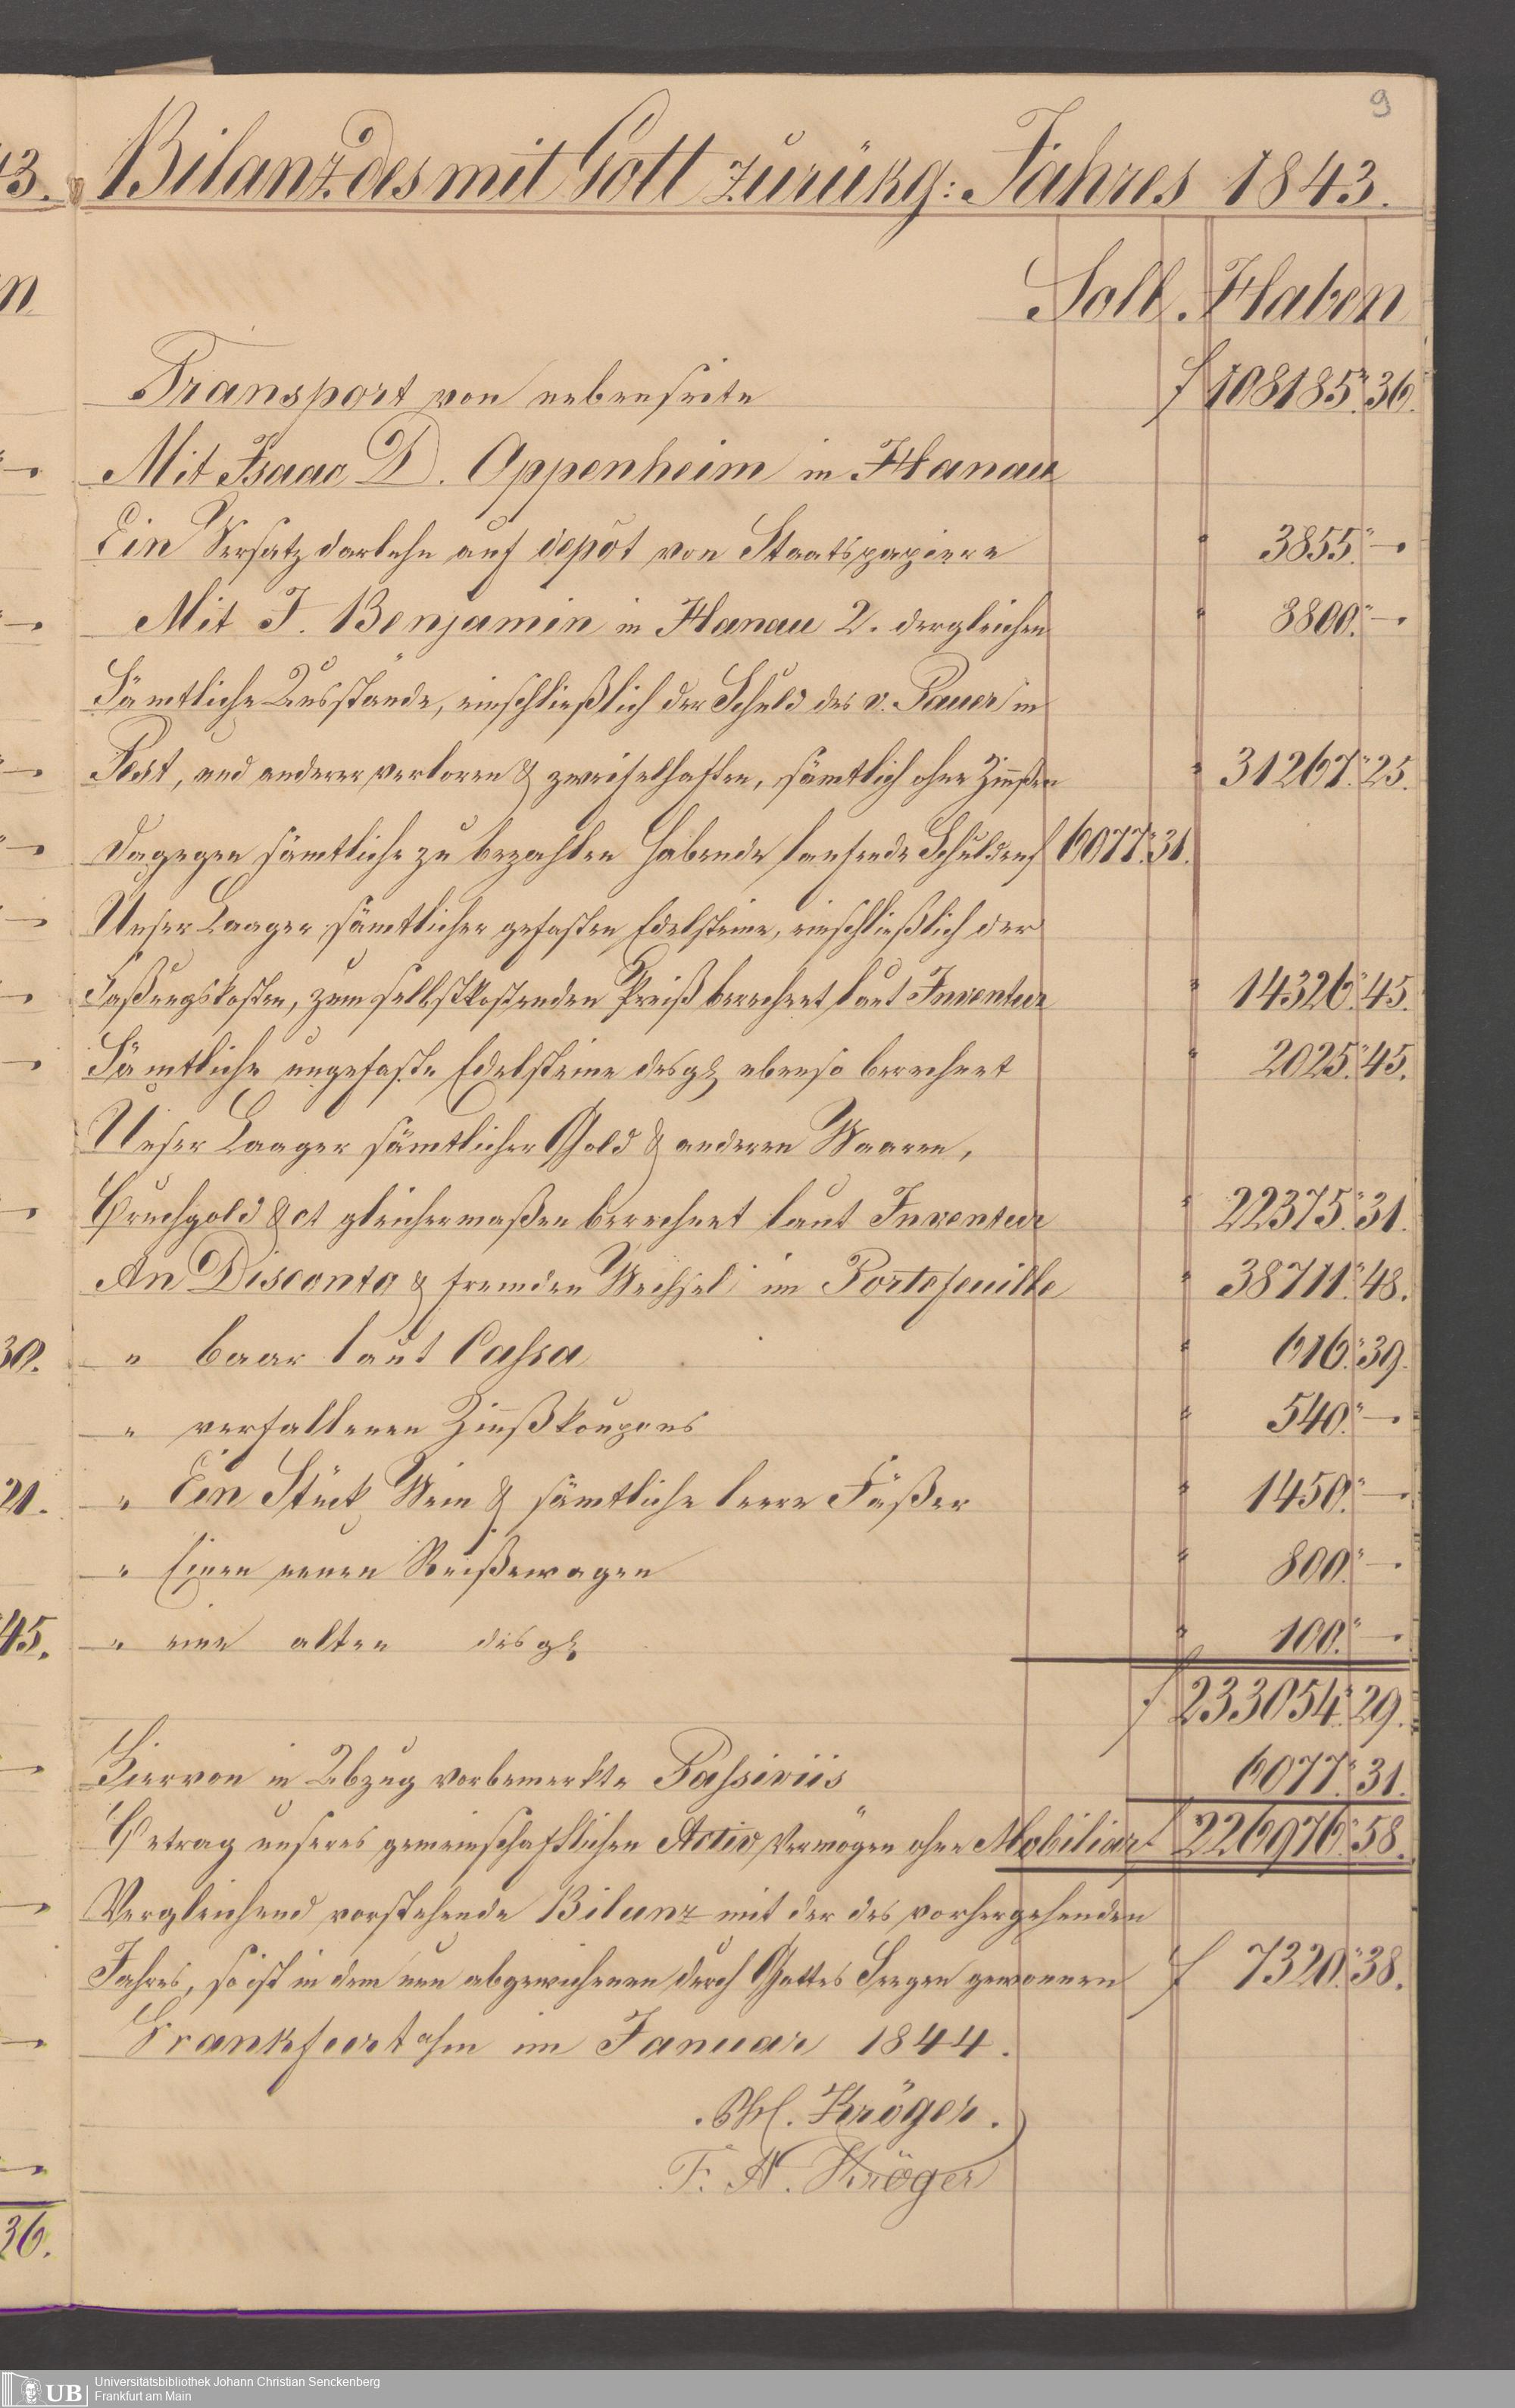 9
Bilanz des mit Gott zurükg: Jahres 1843.
Soll. Haben
Transport von nebenseite f 108185." 36.
Mit Isaac D. Oppenheim in Hanau
Ein Versatzdarlehn auf depôt von Staatspapiere " 3855." —.
Mit J. Benjamin in Hanau 2. dergleichen " 8800." —.
Sämtliche Ausstände, einschließlich der Schuld des v. Pauer in
Pest, und anderer verloren & zweifelhaften, sämtlich ohne Zinßen " 31267." 25.
dagegen sämtliche zu bezahlen habende laufende Schulden f 6077." 31.
Unser Laager sämtlicher gefasten Edelsteine, einschließlich der
Faßungskosten, zum selbstkostenden Preiß berechnet laut Inventur " 14326." 45.
Sämtliche ungefaste Edelsteine desgl ebenso berechnet " 2025." 45.
Unser Laager sämtlicher Gold & anderen Waaren,
Bruchgold &ct gleichermaßen berechnet laut Inventur " 22375." 31.
An Disconto & fremden Wechsel im Portefeuille " 38711." 48.
" baar laut Cassa " 616." 39.
" verfallenen Zinßkoupons " 540." —.
" Ein Stück Wein & sämtliche leere Fäßer " 1450." —.
" Einen neuen Reißewagen " 800." —.
" eine alten desgl " 100." —.
f 233054." 29.
Hiervon in Abzug vorbemerkte Passiviis 6077." 31.
Betrag unseres gemeinschaftlichen Activ Vermögen ohne Mobiliar f 226976." 58.
Vergleichend vorstehende Bilanz mit der des vorhergehenden
Jahres, so ist in dem nun abgewichenen durch Gottes Seegen gewonnen f 7320." 38.
Frankfurt a/m im Januar 1844.
Kröger.
F. A. Kröger
UB Universitätsbibliothek Johann Christian Senckenberg
Frankfurt am Main